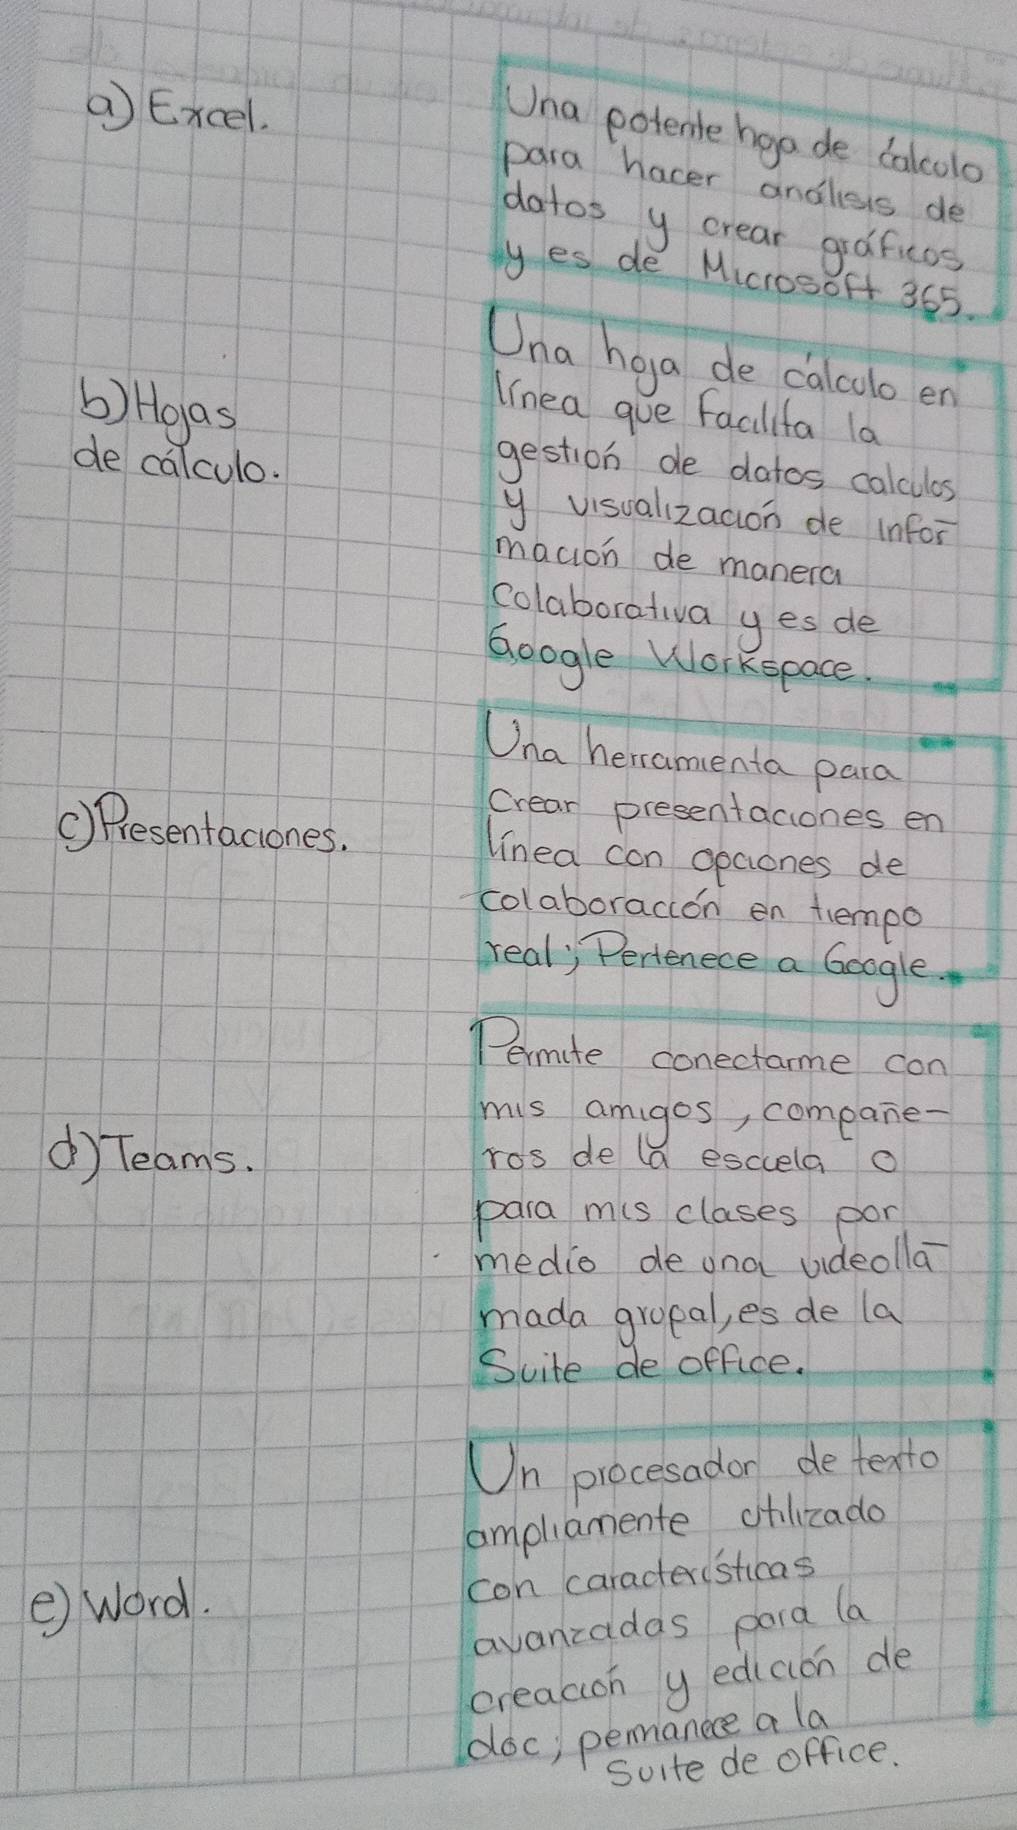 a) Excel.
Una potente hoja de cálculo
para hacer análisis de
datos y crear gráficos
y es de Microsoft 365.
b) Hojas
de cálculo.
Una hoja de cálculo en
línea que facilita la
gestión de datos calculos
y visualización de infor-
mación de manera
colaborativa y es de
Google Workspace.
c) Presentaciones.
Una herramienta para
crear presentaciones en
línea con opciones de
colaboración en tiempo
real; Pertenece a Google.
d) Teams.
Permite conectarme con
mis amigos, compañe-
ros de la escuela o
para mis clases por
medio de una videolla-
mada grupal, es de la
Suite de office.
e) Word.
Un procesador de texto
ampliamente utilizado
con características
avanzadas para la
creación y edición de
doc; permanece a la
suite de office.